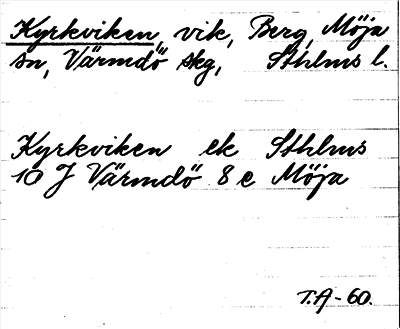 Kyrkviken, vik, Berg, Möja
sn, Värmdö skg, Sthlms l.
Kyrkviken ek Sthlms
10 J Värmdö 8 e Möja
T.A-60.